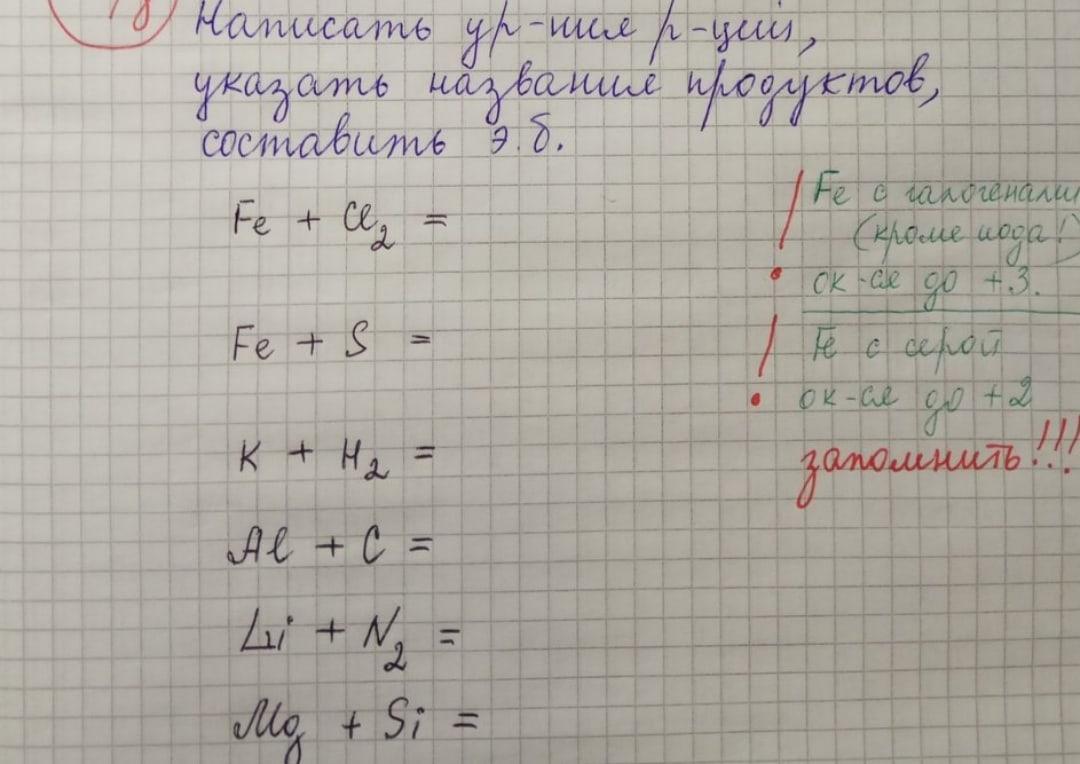 Написать ур-ния р-ций,
указать названия продуктов,
составить э.б.
Fe + Cl₂ =
Fe + S =
K + H₂ =
Al + C =
Li + N₂ =
Mg + Si =
! Fe с галогенами
(кроме иода!)
ок-ся до +3.
! Fe с серой
ок-ся до +2
запомнить!!!